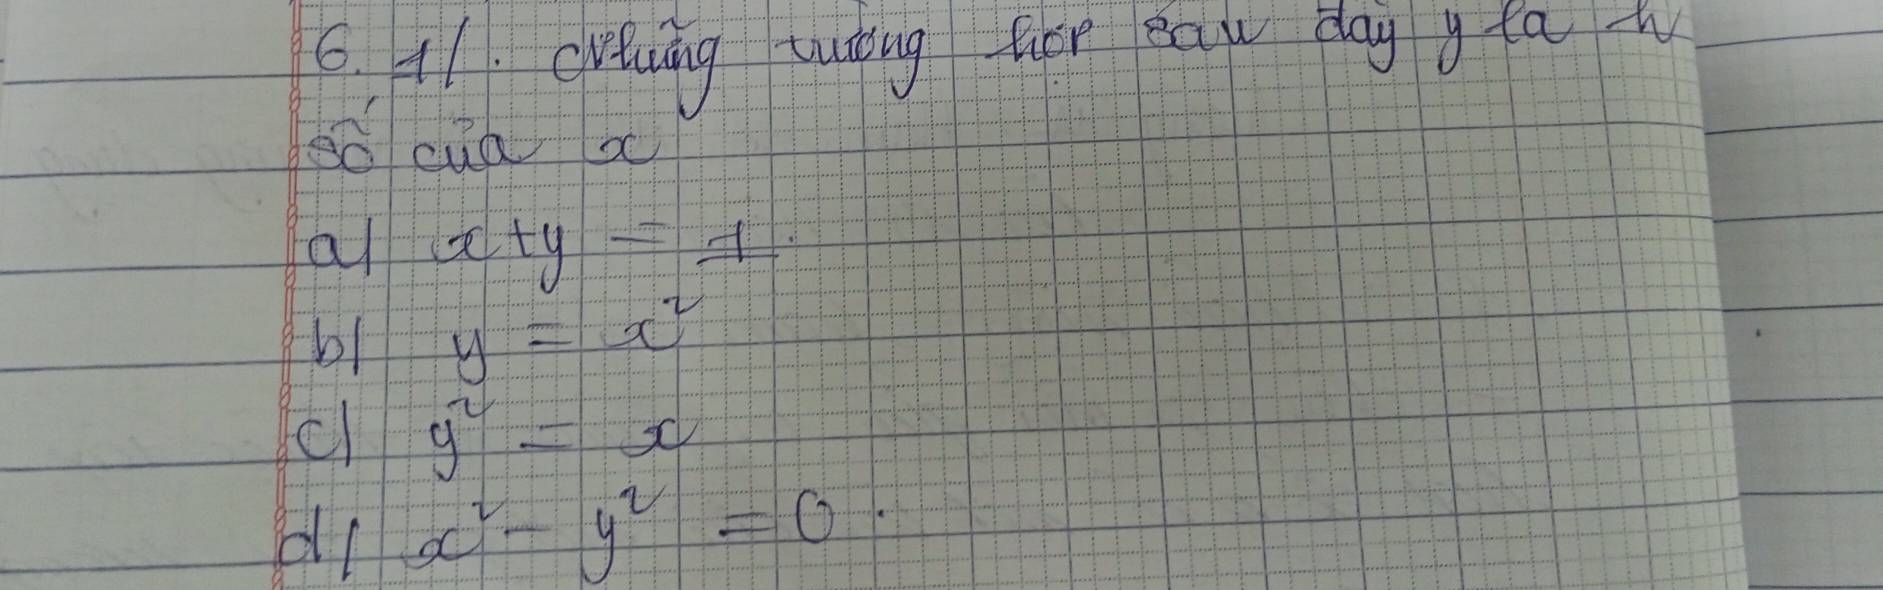 6. 1/. Những trường hợp sau đây y là h
số của x
a/ x + y = 1.
b/ y = x²
c/ y² = x
d/ x² - y² = 0.